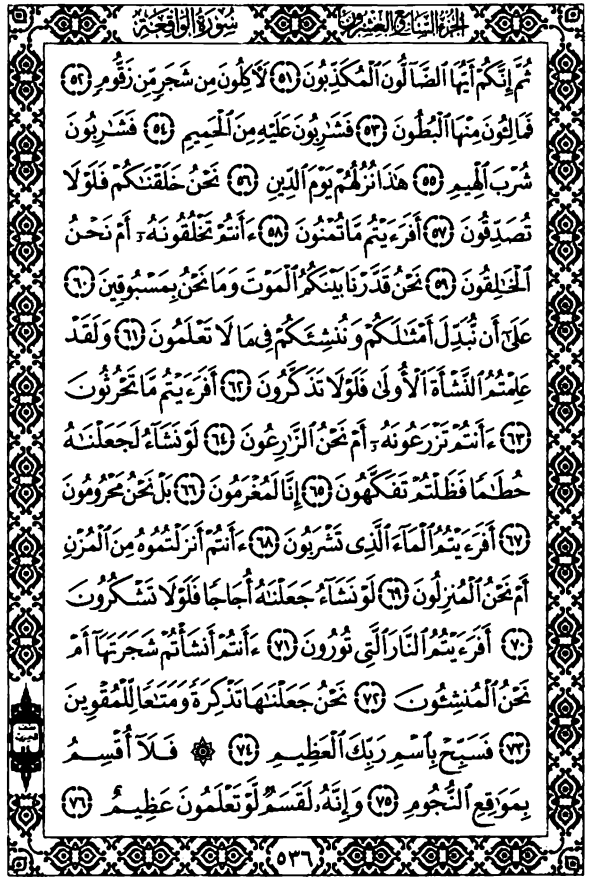 الجزء السابع والعشرون سورة الواقعة
ثُمَّ إِنَّكُمْ أَيُّهَا ٱلضَّآلُّونَ ٱلْمُكَذِّبُونَ ٥١ لَآكِلُونَ مِن شَجَرٍ مِّن زَقُّومٍ ٥٢
فَمَالِـُٔونَ مِنْهَا ٱلْبُطُونَ ٥٣ فَشَٰرِبُونَ عَلَيْهِ مِنَ ٱلْحَمِيمِ ٥٤ فَشَٰرِبُونَ
شُرْبَ ٱلْهِيمِ ٥٥ هَٰذَا نُزُلُهُمْ يَوْمَ ٱلدِّينِ ٥٦ نَحْنُ خَلَقْنَٰكُمْ فَلَوْلَا
تُصَدِّقُونَ ٥٧ أَفَرَءَيْتُم مَّا تُمْنُونَ ٥٨ ءَأَنتُمْ تَخْلُقُونَهُۥٓ أَمْ نَحْنُ
ٱلْخَٰلِقُونَ ٥٩ نَحْنُ قَدَّرْنَا بَيْنَكُمُ ٱلْمَوْتَ وَمَا نَحْنُ بِمَسْبُوقِينَ ٦٠
عَلَىٰٓ أَن نُّبَدِّلَ أَمْثَٰلَكُمْ وَنُنشِئَكُمْ فِى مَا لَا تَعْلَمُونَ ٦١ وَلَقَدْ
عَلِمْتُمُ ٱلنَّشْأَةَ ٱلْأُولَىٰ فَلَوْلَا تَذَكَّرُونَ ٦٢ أَفَرَءَيْتُم مَّا تَحْرُثُونَ
٦٣ ءَأَنتُمْ تَزْرَعُونَهُۥٓ أَمْ نَحْنُ ٱلزَّٰرِعُونَ ٦٤ لَوْ نَشَآءُ لَجَعَلْنَٰهُ
حُطَٰمًا فَظَلْتُمْ تَفَكَّهُونَ ٦٥ إِنَّا لَمُغْرَمُونَ ٦٦ بَلْ نَحْنُ مَحْرُومُونَ
٦٧ أَفَرَءَيْتُمُ ٱلْمَآءَ ٱلَّذِى تَشْرَبُونَ ٦٨ ءَأَنتُمْ أَنزَلْتُمُوهُ مِنَ ٱلْمُزْنِ
أَمْ نَحْنُ ٱلْمُنزِلُونَ ٦٩ لَوْ نَشَآءُ جَعَلْنَٰهُ أُجَاجًا فَلَوْلَا تَشْكُرُونَ
٧٠ أَفَرَءَيْتُمُ ٱلنَّارَ ٱلَّتِى تُورُونَ ٧١ ءَأَنتُمْ أَنشَأْتُمْ شَجَرَتَهَآ أَمْ
نَحْنُ ٱلْمُنشِـُٔونَ ٧٢ نَحْنُ جَعَلْنَٰهَا تَذْكِرَةً وَمَتَٰعًا لِّلْمُقْوِينَ
٧٣ فَسَبِّحْ بِٱسْمِ رَبِّكَ ٱلْعَظِيمِ ٧٤ ۞ فَلَآ أُقْسِمُ
بِمَوَٰقِعِ ٱلنُّجُومِ ٧٥ وَإِنَّهُۥ لَقَسَمٌ لَّوْ تَعْلَمُونَ عَظِيمٌ ٧٦
٥٣٦